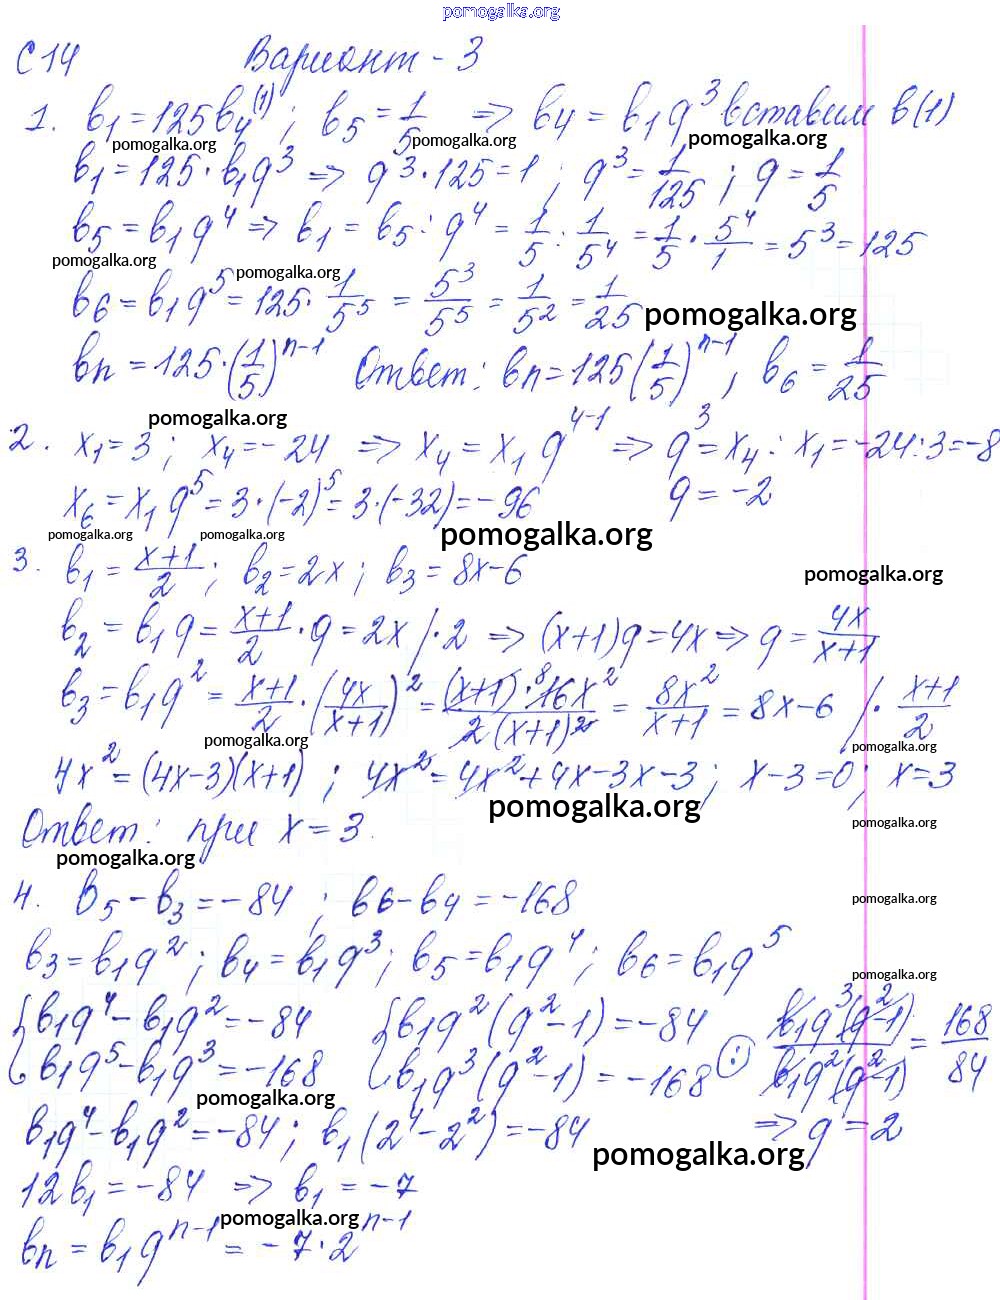 pomogalka.org
С 14 Вариант - 3
1. b₁ = 125b₄ (1) ; b₅ = 1/5 => b₄ = b₁q³ вставим в (1)
pomogalka.org pomogalka.org pomogalka.org
b₁ = 125 · b₁q³ => q³ · 125 = 1 ; q³ = 1/125 ; q = 1/5
b₅ = b₁q⁴ => b₁ = b₅ : q⁴ = 1/5 : 1/5⁴ = 1/5 · 5⁴/1 = 5³ = 125
pomogalka.org pomogalka.org
b₆ = b₁q⁵ = 125 · 1/5⁵ = 5³/5⁵ = 1/5² = 1/25
pomogalka.org
bn = 125 · (1/5)ⁿ⁻¹ Ответ: bn = 125(1/5)ⁿ⁻¹, b₆ = 1/25
pomogalka.org
2. x₁ = 3 ; x₄ = -24 => x₄ = x₁ q⁴⁻¹ => q³ = x₄ : x₁ = -24 : 3 = -8
x₆ = x₁ q⁵ = 3 · (-2)⁵ = 3 · (-32) = -96 q = -2
pomogalka.org pomogalka.org pomogalka.org
3. b₁ = (x+1)/2 ; b₂ = 2x ; b₃ = 8x-6
pomogalka.org
b₂ = b₁q = (x+1)/2 · q = 2x / · 2 => (x+1)q = 4x => q = 4x/(x+1)
b₃ = b₁q² = (x+1)/2 · (4x/(x+1))² = (x+1) · ⁸16x²/2(x+1)² = 8x²/(x+1) = 8x-6 / · (x+1)/2
pomogalka.org pomogalka.org
4x² = (4x-3)(x+1) ; 4x² = 4x² + 4x - 3x - 3 ; x-3 = 0 ; x = 3
pomogalka.org
Ответ: при x = 3.
pomogalka.org
pomogalka.org
4. b₅ - b₃ = -84 ; b₆ - b₄ = -168
pomogalka.org
b₃ = b₁q² ; b₄ = b₁q³ ; b₅ = b₁q⁴ ; b₆ = b₁q⁵
pomogalka.org
{b₁q⁴ - b₁q² = -84 {b₁q²(q²-1) = -84 b₁q³(q²-1)/b₁q²(q²-1) = 168/84
b₁q⁵ - b₁q³ = -168 b₁q³(q²-1) = -168 (:)
pomogalka.org
b₁q⁴ - b₁q² = -84 ; b₁(2⁴ - 2²) = -84 => q = 2
pomogalka.org
12b₁ = -84 => b₁ = -7
pomogalka.org
bn = b₁qⁿ⁻¹ = -7 · 2ⁿ⁻¹